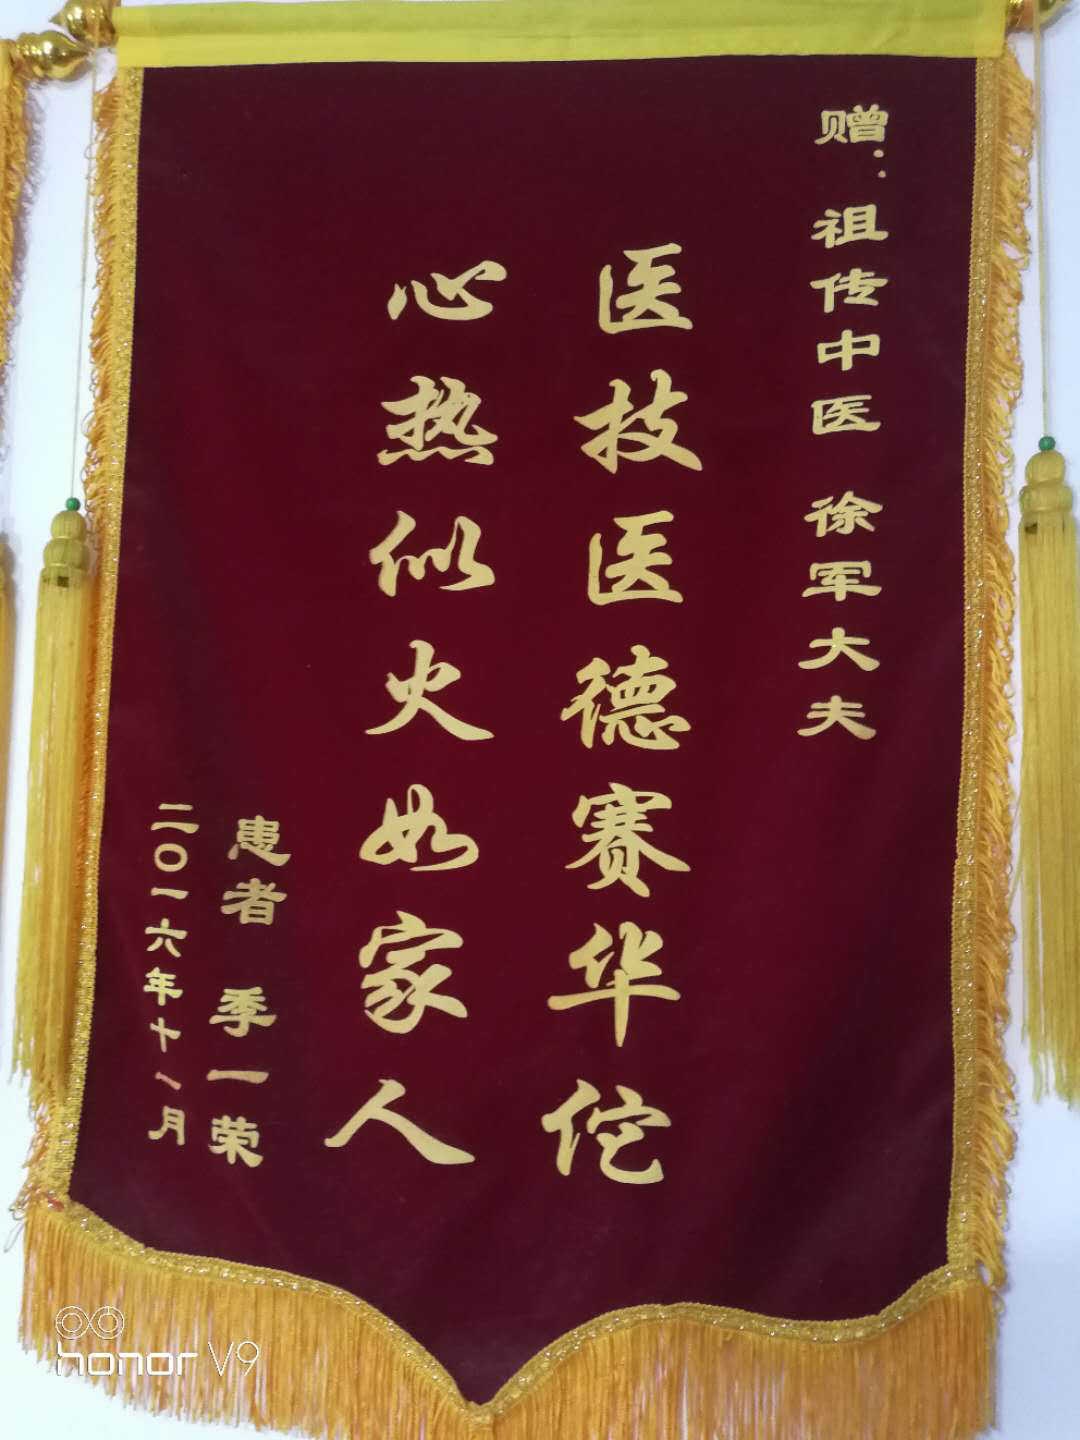 赠：祖传中医 徐军大夫
医技医德赛华佗
心热似火如家人
患者 季一荣
二〇一六年十一月
honor V9